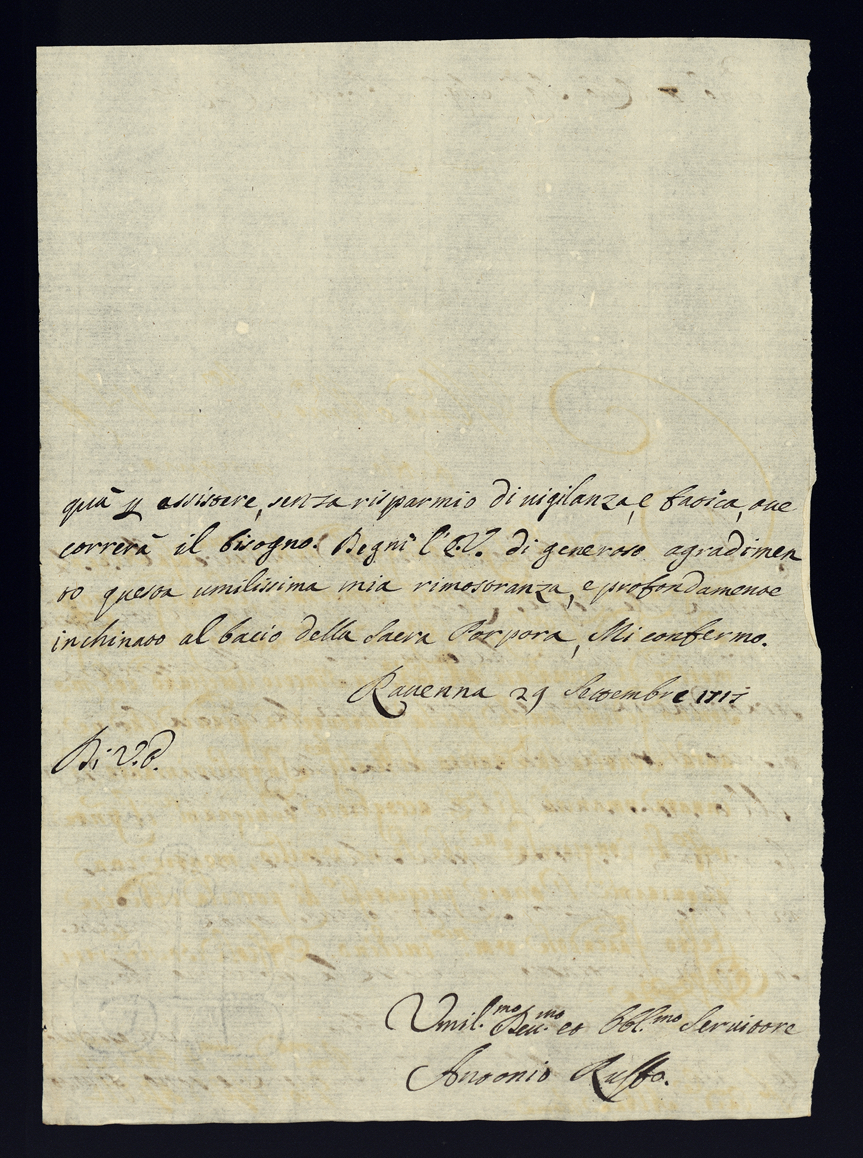 quà p assistere, senza risparmio di uigilanza, e fatica, oue
correrà il bisogno. Degni l'E.V. di generoso agradimen
to questa umilissima mia rimostranza, e profondamente
inchinato al bacio della Sacra Porpora, Mi confermo.
Rauenna 29 Settembre 1717
Di V.E.
Vmil.mo Deu.mo et Obl.mo Seruitore
Antonio Ruffo.